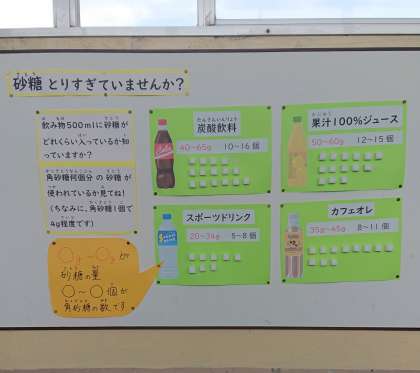 砂糖とりすぎていませんか?
飲み物500mlに砂糖が
どれくらい入っているか知
っていますか?
角砂糖何個分の砂糖が
使われているか見てね!
(ちなみに、角砂糖1個で
4g程度です)
○g~○gが
砂糖の量
○~○個が
角砂糖の数です
炭酸飲料
40~65g 10~16個
果汁100%ジュース
50~60g 12~15個
スポーツドリンク
20~34g 5~8個
カフェオレ
35g~45g 8~11個